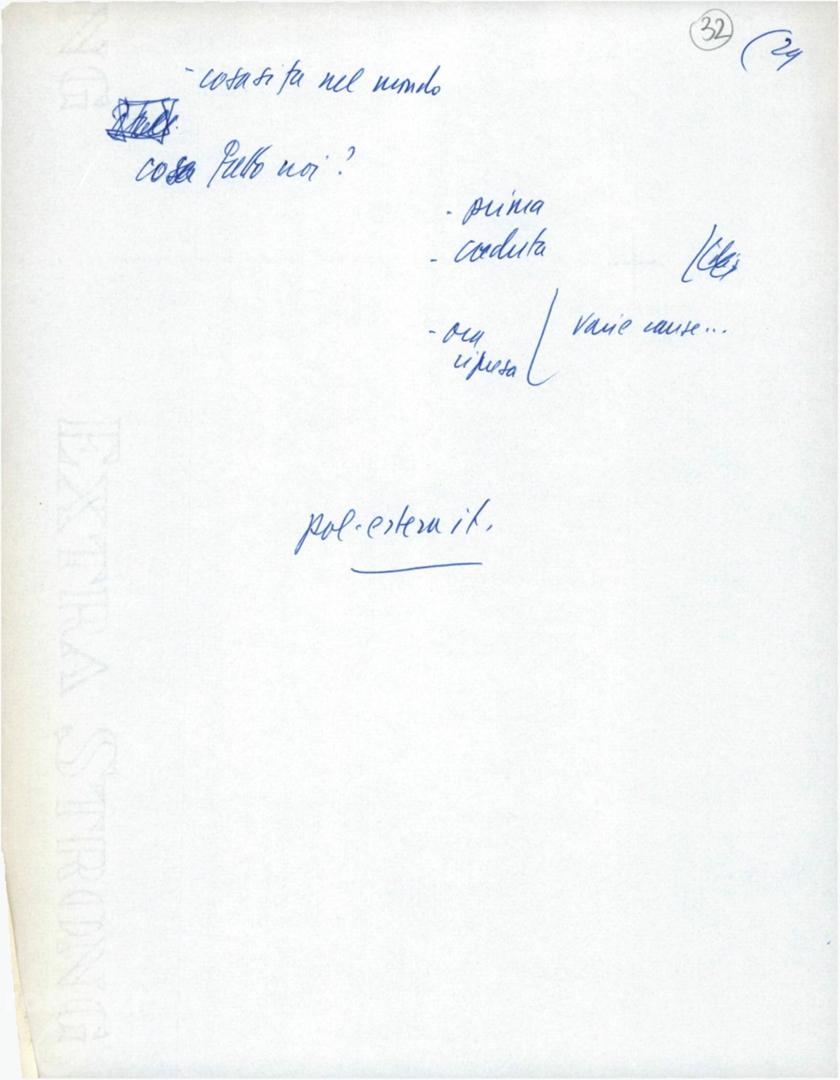 32
(24
- cosa si fa nel mondo
cosa fatto noi?
- prima
- caduta
- ora
ripresa
varie cause...
pol. estera it.
EXTRA STRONG